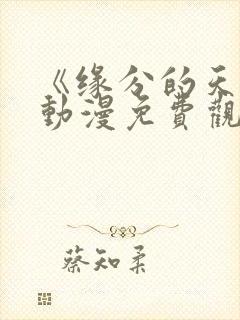 《缘分的天
動漫免費觀
蔡知柔